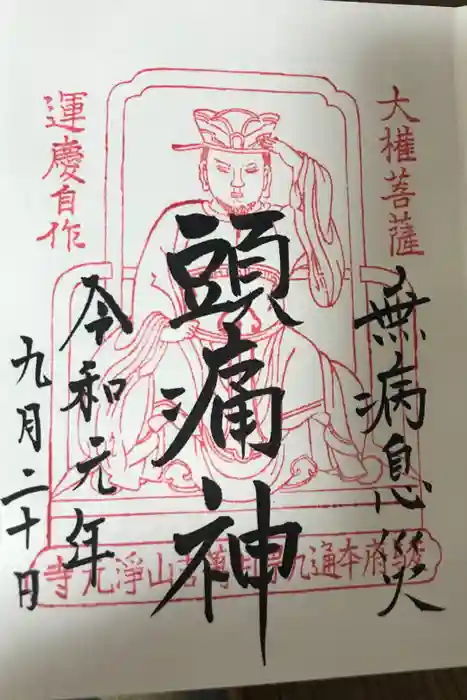 大權菩薩
無病息災
頭痛神
運慶自作
令和元年
九月二十日
府本通九
山淨元寺